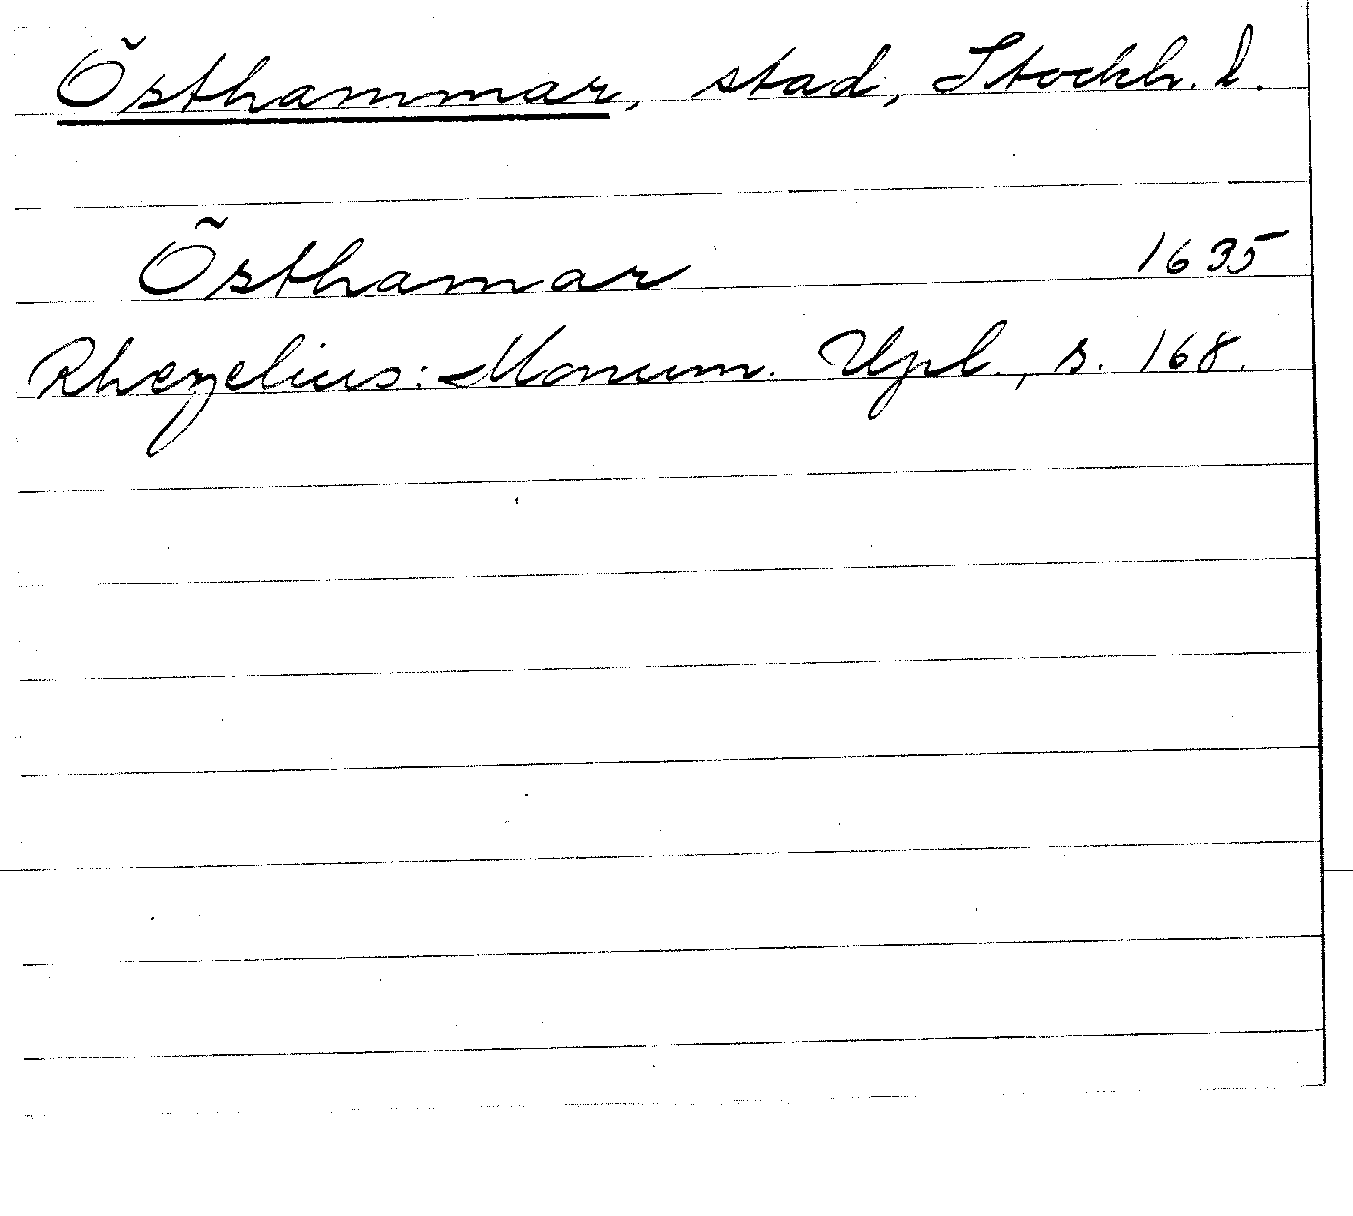 Östhammar, stad, Stockh. l.
Östhamar 1635
Rhezelius: Monum. Upl., s. 168.